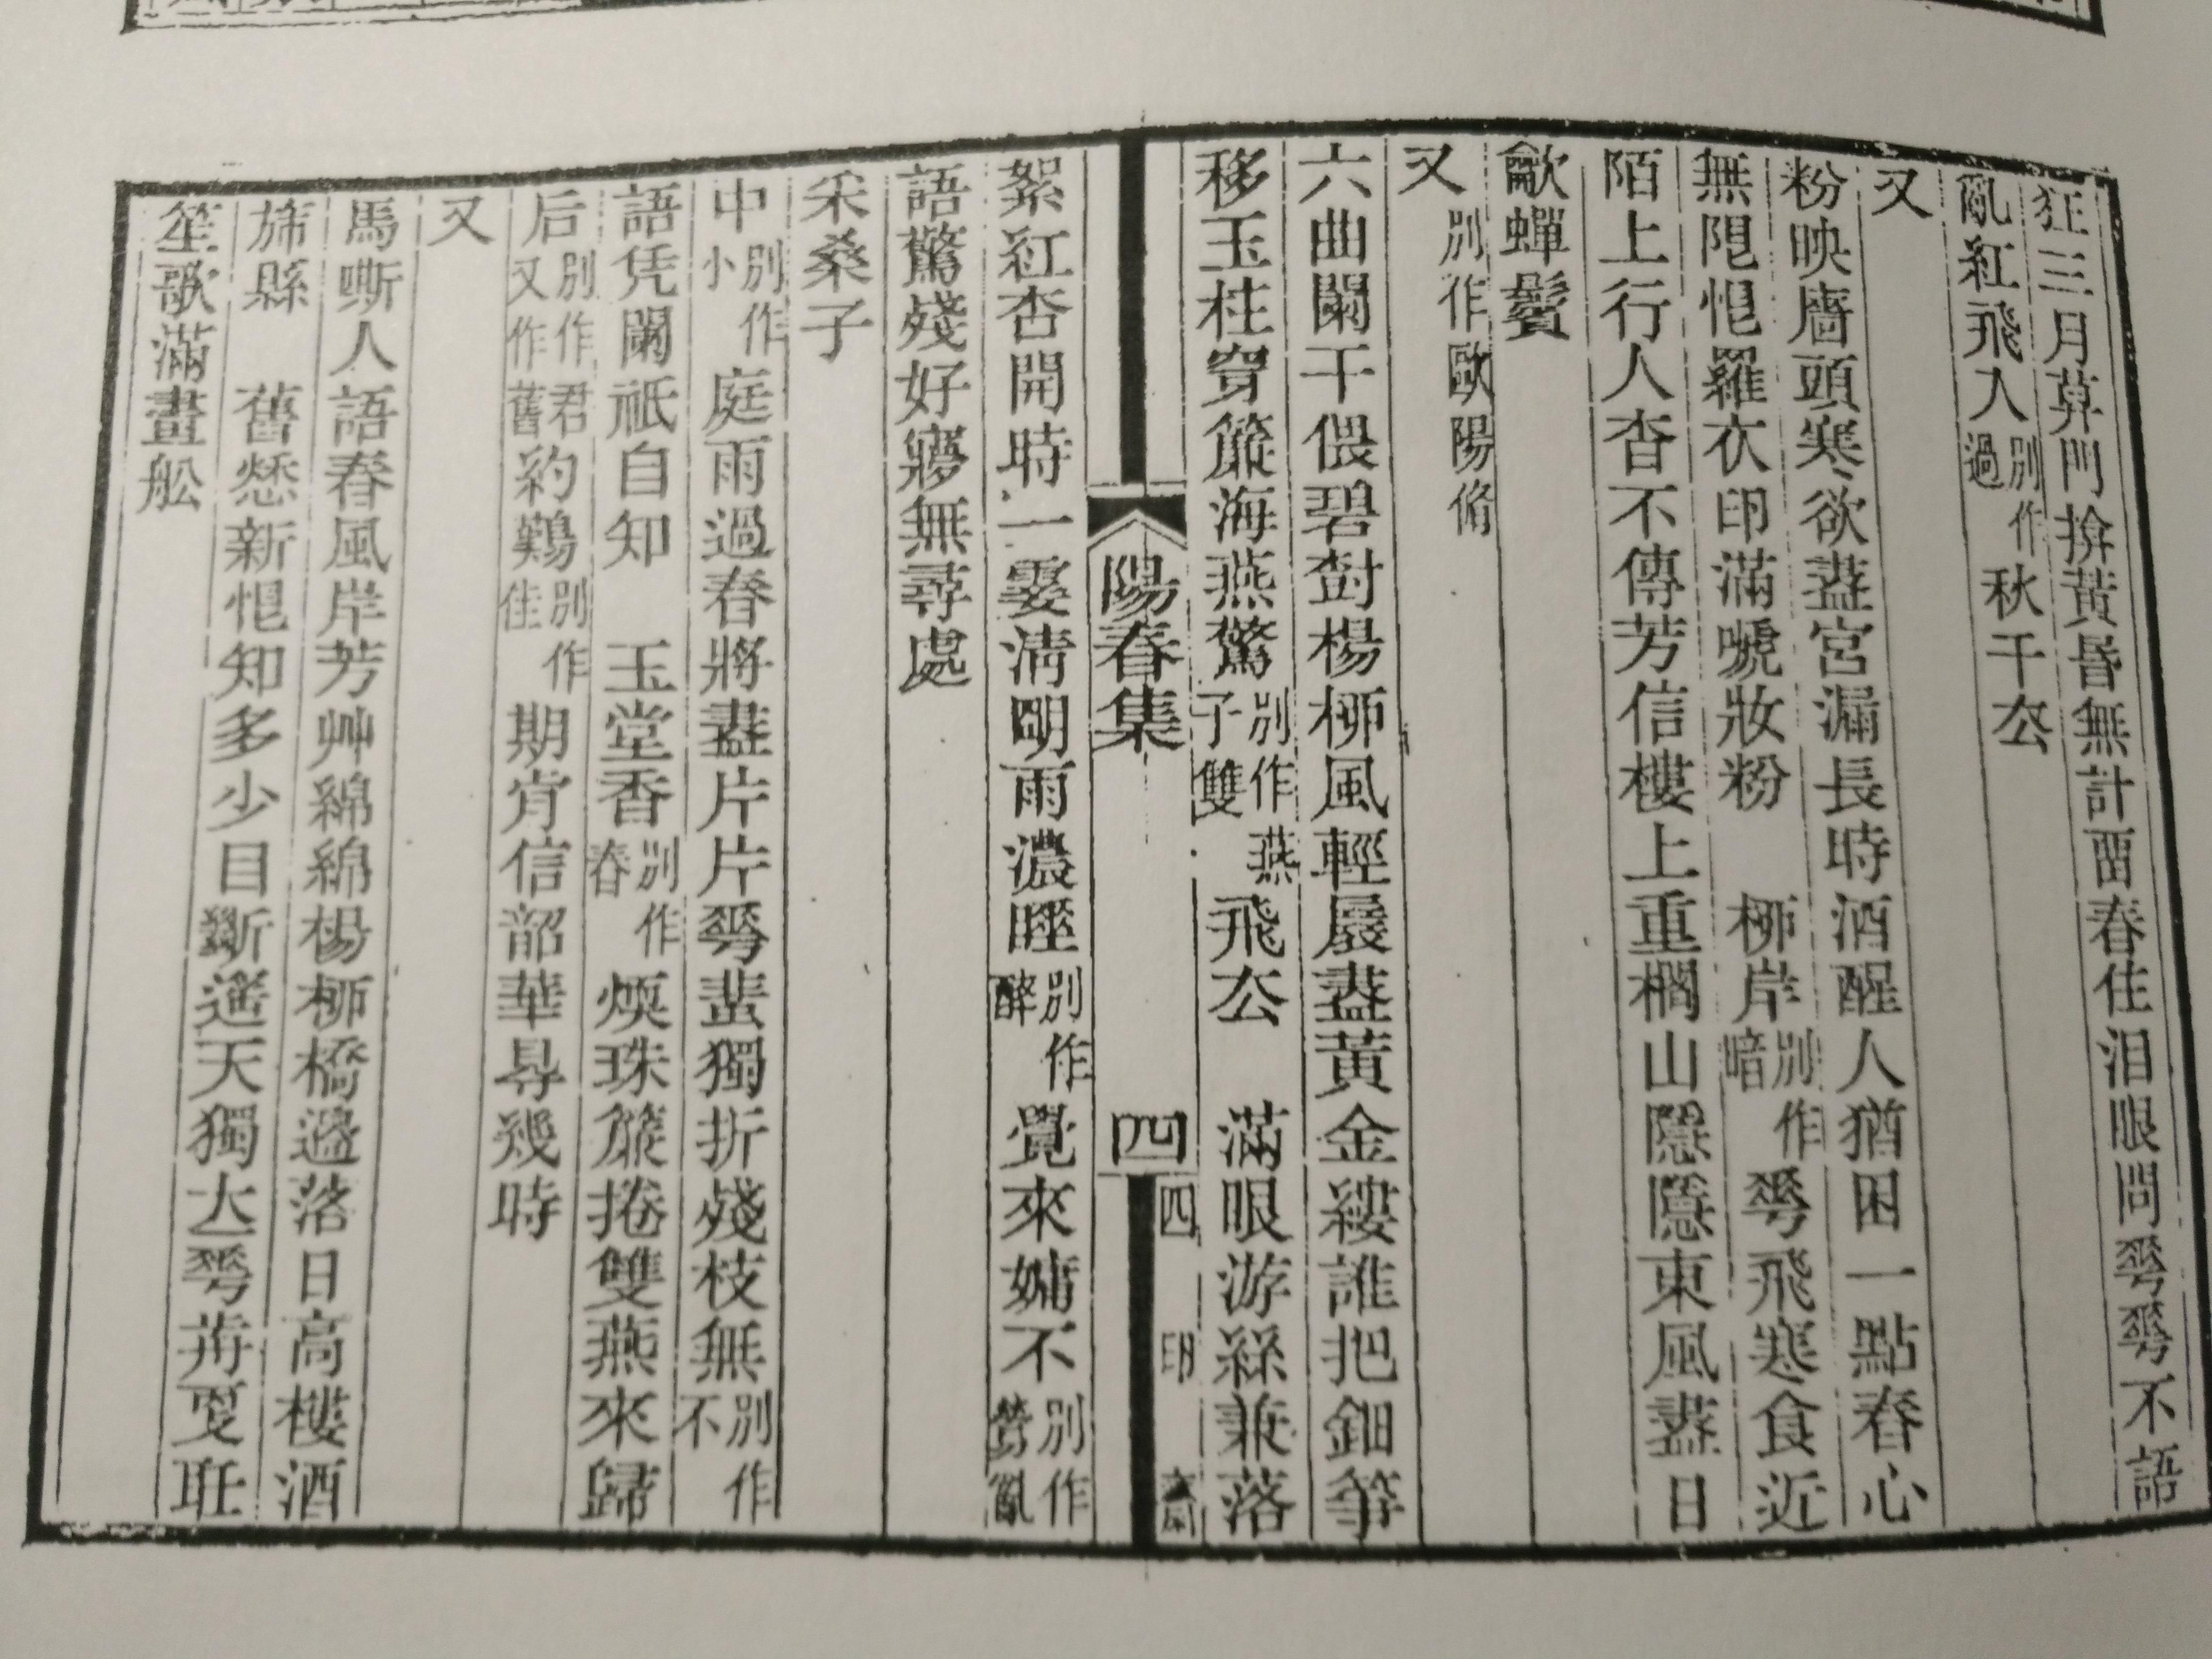 狂三月莫門揜黃昬無計畱春住泪眼問𠌶𠌶不語
亂紅飛入別作過秋千厺
又
粉映牆頭寒欲盡宮漏長時酒醒人猶困一點春心
無限恨羅衣印滿嗁妝粉　桺岸別作暗𠌶飛寒食近
陌上行人杳不傳芳信樓上重檐山隱隱東風盡日
歛蟬鬢
又別作歐陽脩
六曲闌干偎碧樹楊桺風輕展盡黃金縷誰把鈿箏
移玉柱穿簾海燕驚別作燕子雙飛厺　滿眼游絲兼落
陽春集　四
四印齋
絮紅杏開時一霎淸朙雨濃睡別作醉覺來慵不別作鶯亂
語驚殘好㝱無尋處
采桑子
中別作小庭雨過春將盡片片𠌶蜚獨折殘枝無別作不
語凭闌祇自知　玉堂香別作春煗珠簾捲雙燕來歸
后別作君又作舊約難別作佳期肯信韶華㝵幾時
又
馬嘶人語春風岸芳艸綿綿楊桺橋邊落日高樓酒
斾縣　舊愁新恨知多少目斷遙天獨立𠌶歬更聽
笙歌滿畫舩